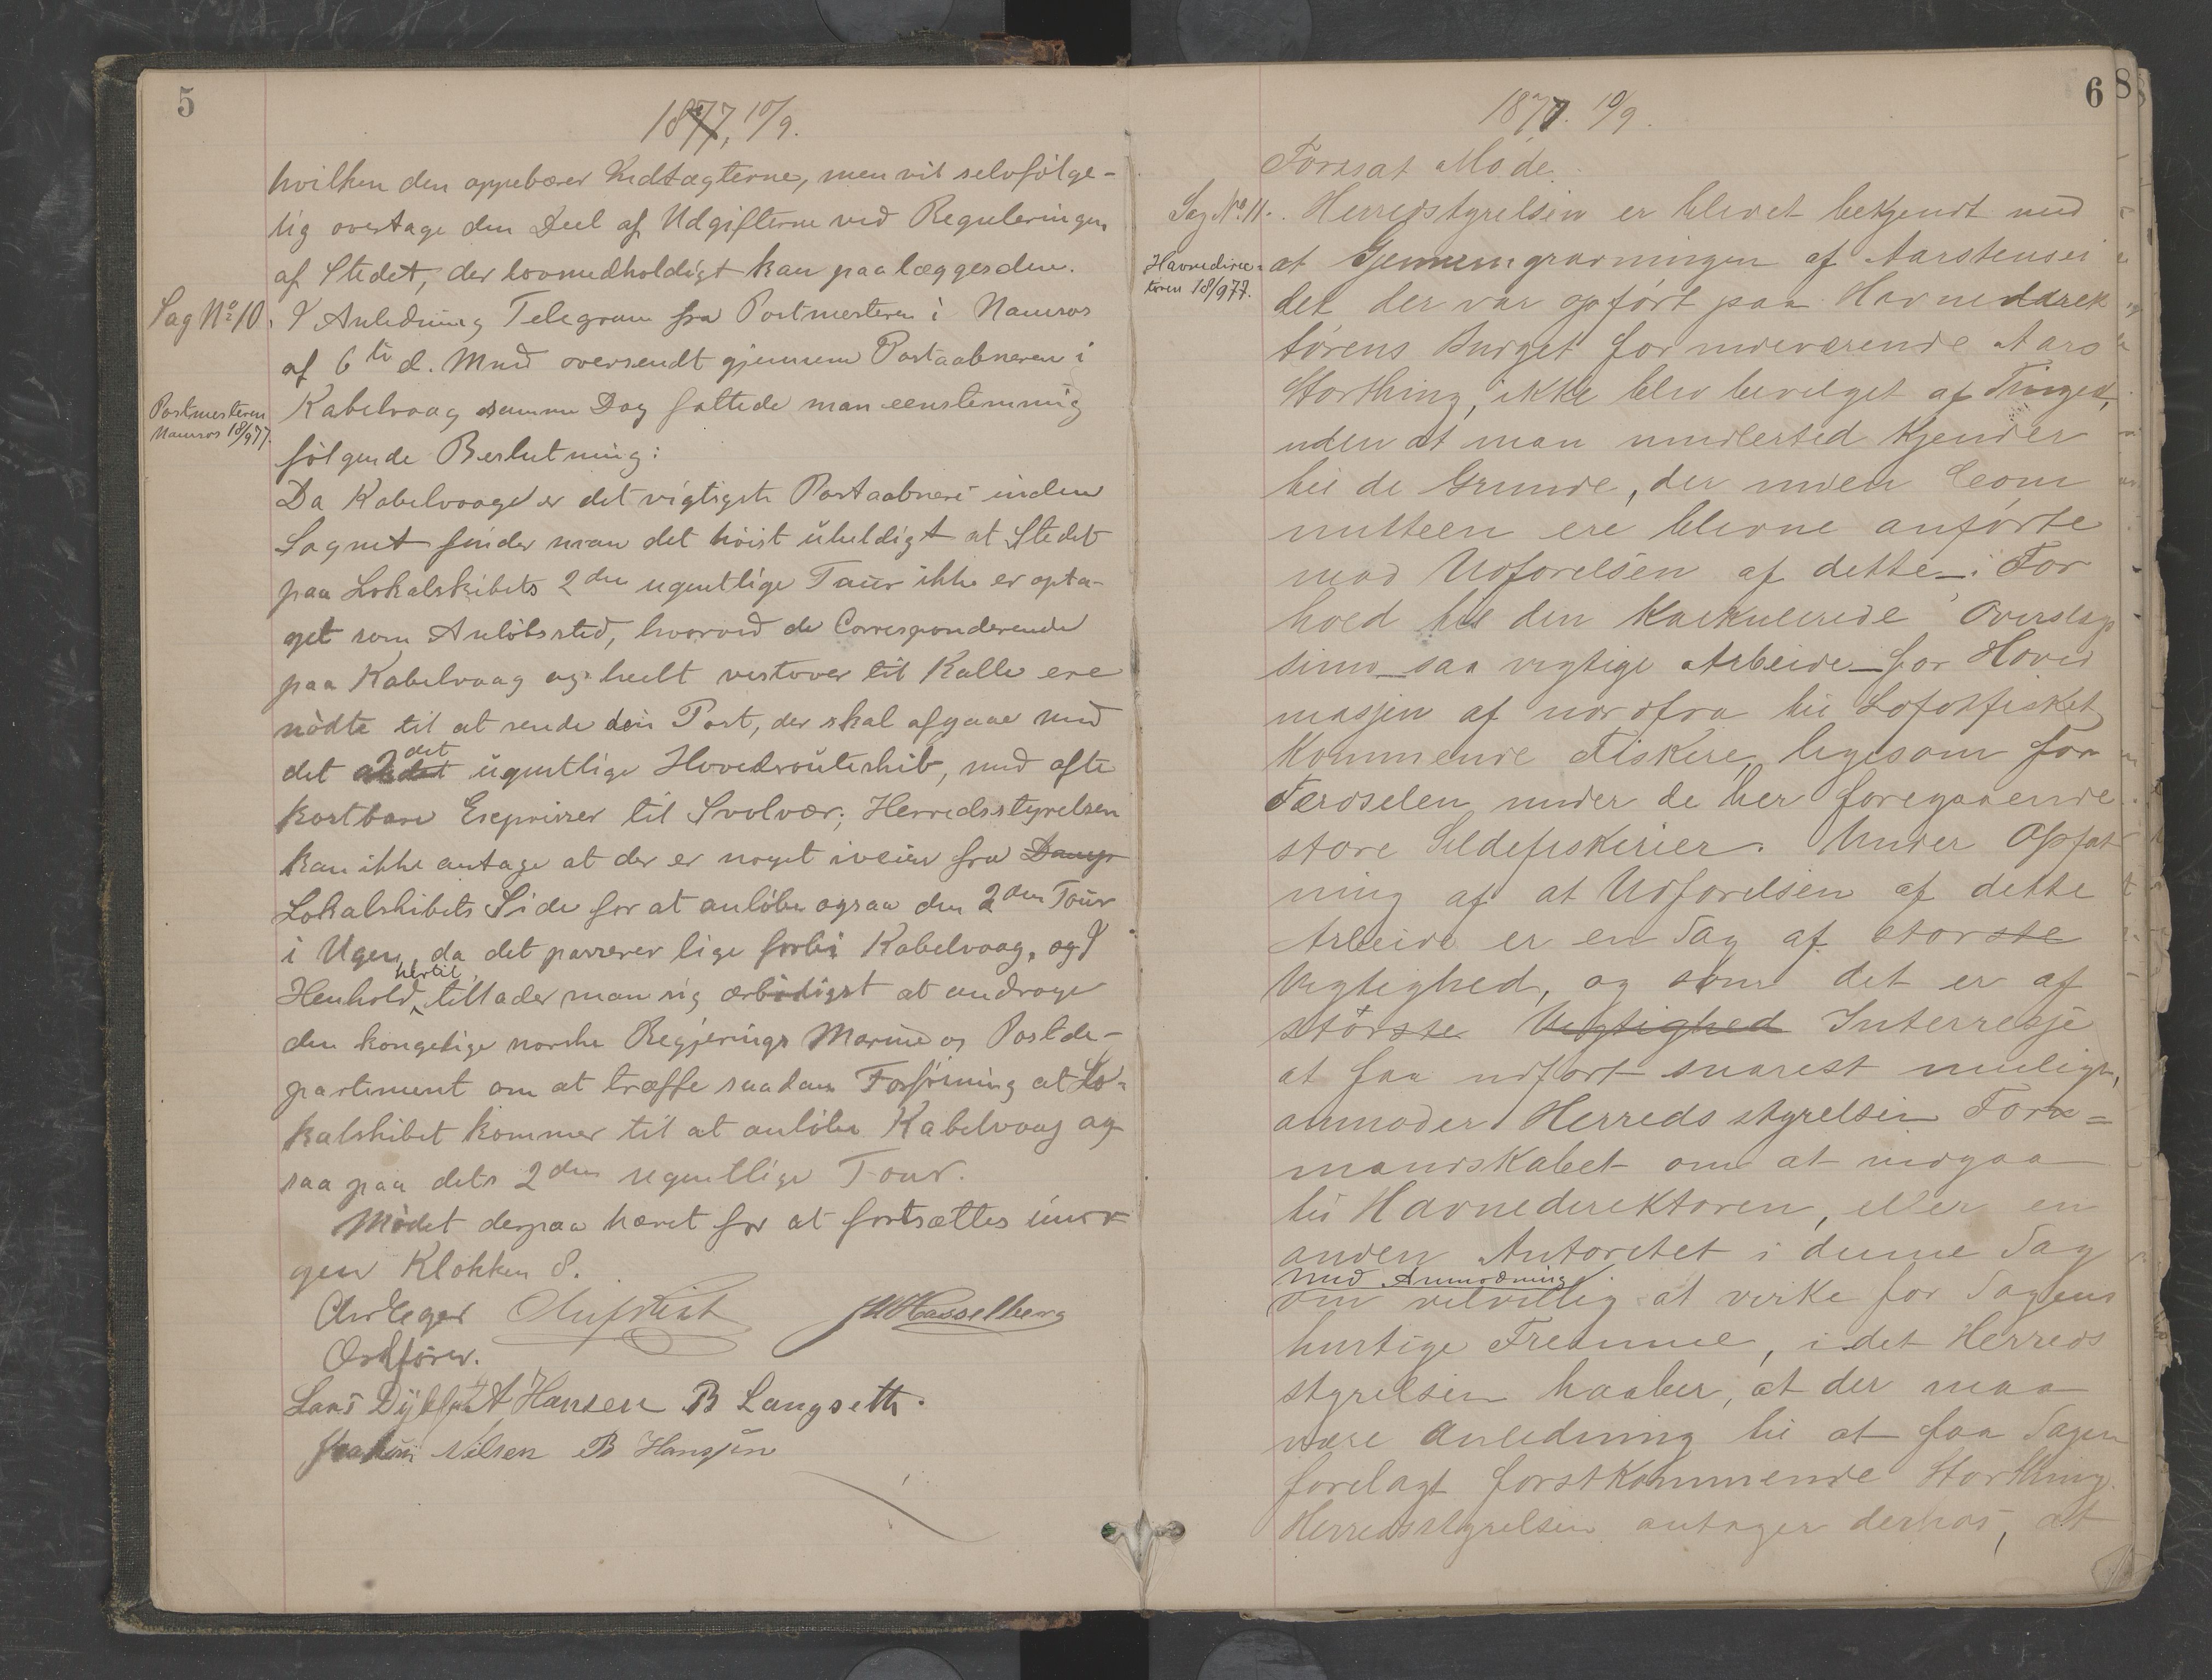 5
1877, 10/9.
hvilken den oppebærer Indtægterne, men vil selvfölge-
lig overtage den Deel af Udgifterne ved Reguleringen
af Stedet, der lovmedholdigt kan paalægges den.
Sag No 10. I Anledning Telegram fra Postmesteren i Namsos
af 6te d. Mnd oversendt gjennem Postaabneren i
Postmesteren Namsos 18/9 77.
Kabelvaag samme Dag fattede man eenstemmig
fölgende Beslutning:
Da Kabelvaage er det vigtigste Postaabneri inden
Sognet finder man det höist uheldigt at Stedet
paa Lokalskibets 2den ugentlige Tour ikke er opta-
get som Anlöbssted, hvorved de Corresponderende
paa Kabelvaag og heelt vestover til Kalle ere
nödte til at sende den Post, der skal afgaae med
det 2det ugentlige Hovedrouteskib, med ofte
kostbare Expresser til Svolvær; Herredsstyrelsen
kan ikke antage at der er noget iveien fra Damp
Lokalskibets Side for at anlöbe ogsaa den 2den Tour
i Ugen, da det passerer lige forbi Kabelvaag, og I
Henhold hertil tillader man sig ærbödigst at andrage
den kongelige norske Regjerings Marine og Postde-
partement om at træffe saadan Forföining at Lo-
kalskibet kommer til at anlöbe Kabelvaag og-
saa paa dets 2den ugentlige Tour.
Mödet derpaa hævet for at fortsættes imor-
gen Klokken 8.
Chr Eger J M Hasselberg
Ordförer.
Lars A Hansen B Langseth.
Joakim Nilsen B Hansen
6
1877. 10/9.
Forssat Möde.
Sag No. 11. Herredstyrelsen er blevet bekjendt med
Havnedirec-
tören 18/9 77.
at Gjennemgravningen af Aarstensei
det der var opfört paa Havnedirek
törens Budget for nuværende Aars
Storthing, ikke blev bevilget af Tinget,
uden at man imidlertid kjender
til de Grunde, der inden Com
mitteen ere blevne anförte
mod Udforelsen af dette – i For
hold til den Kalkulerede Overslag
simo saa vigtige Arbeide – for Hoved
massen af nordfra til Lofotfisket
Kommende Fiskere, ligesom for
Færdselen under de her foregaaende
store Sildefiskerier. Under Opfat
ning af at Udforelsen af dette
Arbeide er en Sag af storste
Vigtighed, og som det er af
störste Vigtighed Interresse
at faa udfort snarest muligt,
anmoder Herredsstyrelsen For-
mandskabet om at indgaa
til Havnedirektoren, eller en
anden Autoritet i denne Sag
med Anmodning
om velvillig at virke for Sagens
hurtige Fremme, idet Herreds
styrelsen haaber, at der maa
være Anledning til at faa Sagen
forelagt forstkommende Storthing.
Herredsstyrelsen antager derhos, at
8